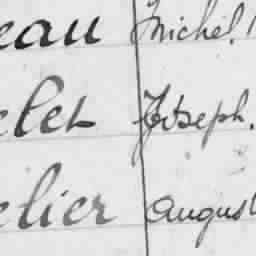 eau Michel.
elet Joseph.
elier August